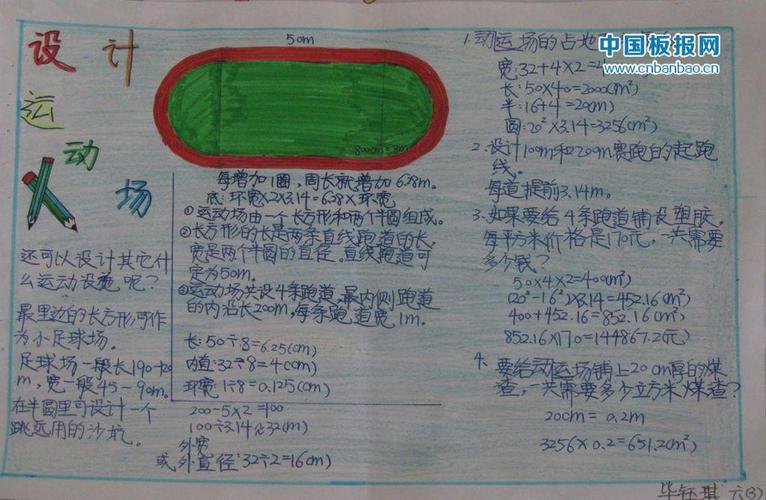 设计
运动场
50m
800cm=8m
中国板报网
www.cnbanbao.cn
每增加1圈,周长就增加6.28m。
底:环宽×2×3.14=6.28×环宽
①运动场由一个长方形和两个半圆组成。
②长方形的长是两条直线跑道的长,
宽是两个半圆的直径。直线跑道可
定为50m。
③运动场共设4条跑道,最内侧跑道
的内沿长200m,每条跑道宽1m。
长:50÷8=6.25(cm)
内直:32÷8=4(cm)
环宽:1÷8=0.125(cm)
200-50×2=100
100÷3.14≈32(m)
外宽
或外直径:32÷2=16(m)
还可以设计其它什
么运动设施呢?
最里边的长方形可作
为小足球场。
足球场一般长90-120
m,宽一般45-90m。
在半圆里可设计一个
跳远用的沙坑。
1.动运场的占地
宽:32+4×2=4
长:50×40=2000(m²)
半:16+4=20(m)
圆:20²×3.14=3256(m²)
2.设计100m和200m赛跑的起跑
线。
每道提前3.14m。
3.如果要给4条跑道铺设塑胶,
每平方米价格是170元,一共需要
多少钱?
50×4×2=400(m²)
(20²-16²)×3.14=452.16(m²)
400+452.16=852.16(m²)
852.16×170=144867.2(元)
4.要给动运场铺上20cm厚的煤
渣,一共需要多少立方米煤渣?
20cm=0.2m
3256×0.2=651.2(m³)
毕钰琪 六(3)